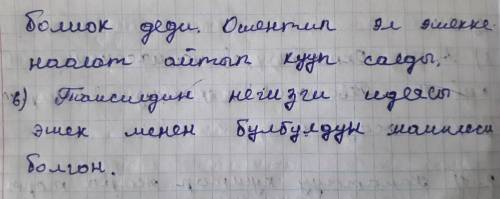 болмок деди. Ошентип эл эшекке
наалат айтып кууп салды.
в) Тамсилдин негизги идеясы
эшек менен булбулдун
болгон.